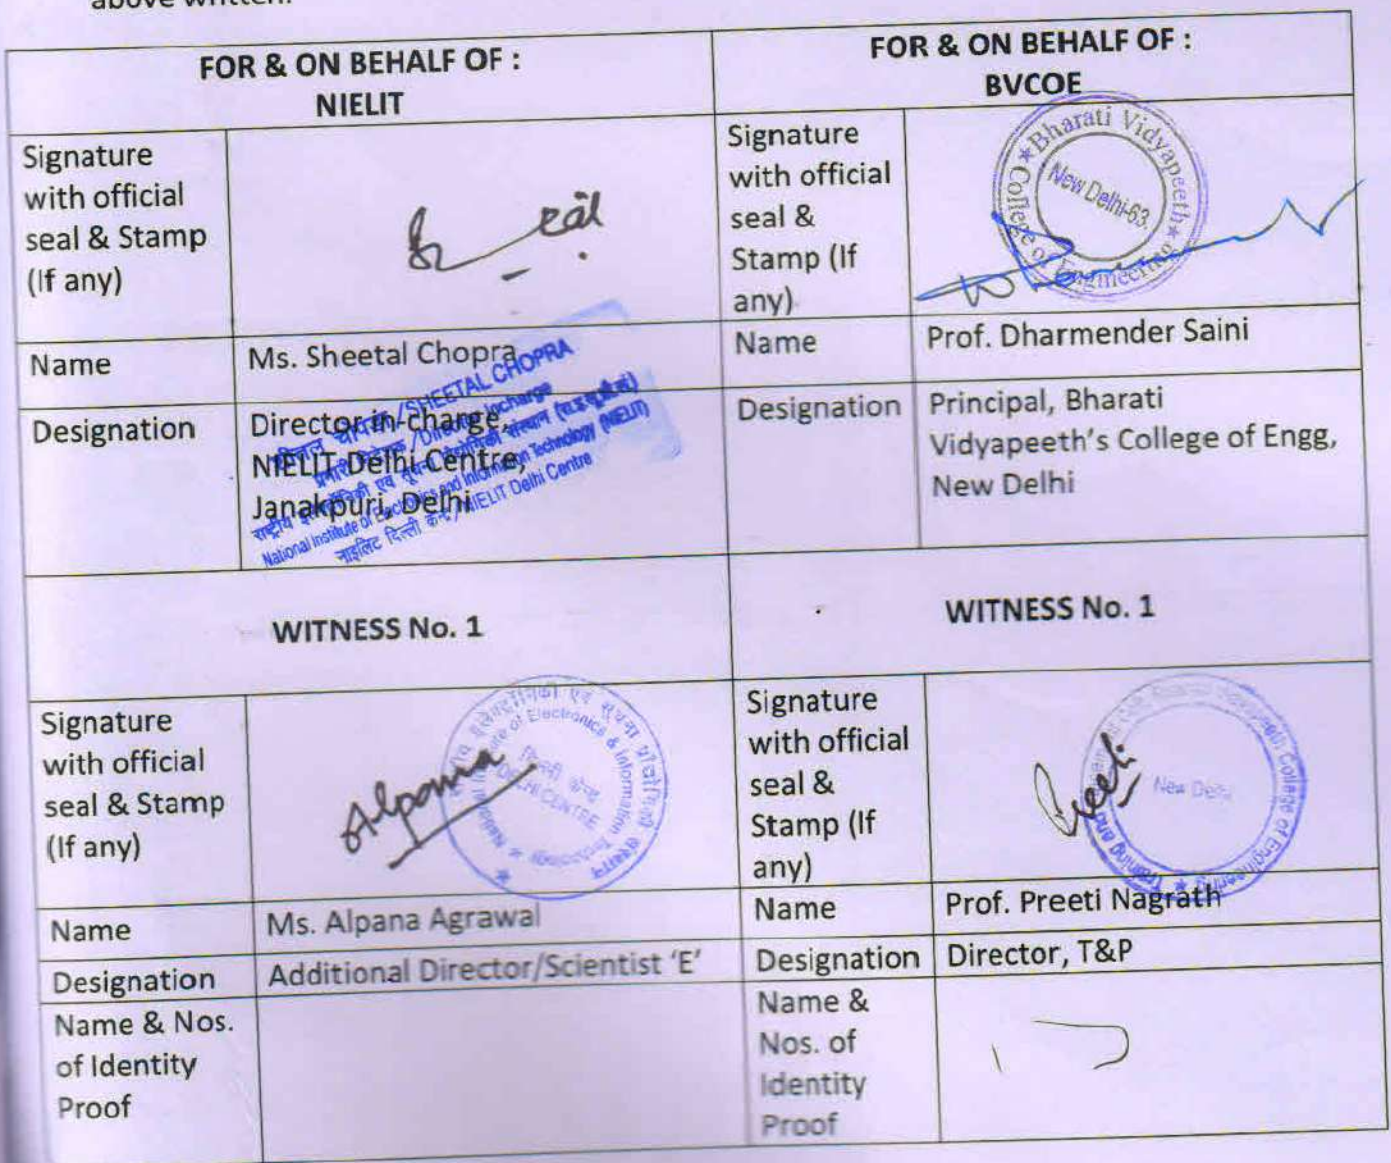 above written.
FOR & ON BEHALF OF :
NIELIT
FOR & ON BEHALF OF :
BVCOE
Signature
with official
seal & Stamp
(If any)
Signature
with official
seal &
Stamp (If
any)
★Bharati Vidyapeeth★
College of Engineering
New Delhi-63.
Name
Ms. Sheetal Chopra
Name
Prof. Dharmender Saini
Designation
Director-in-charge,
NIELIT Delhi Centre,
Janakpuri, Delhi
/SHEETAL CHOPRA
/Director Incharge
राष्ट्रीय इलेक्ट्रॉनिकी एवं सूचना प्रौद्योगिकी संस्थान
National Institute of Electronics and Information Technology (NIELIT)
नाइलिट दिल्ली केन्द्र/NIELIT Delhi Centre
Designation
Principal, Bharati
Vidyapeeth's College of Engg,
New Delhi
WITNESS No. 1
WITNESS No. 1
Signature
with official
seal & Stamp
(If any)
Alpana
इलेक्ट्रॉनिकी एवं सूचना प्रौद्योगिकी संस्थान
National Institute of Electronics & Information Technology
DELHI CENTRE
Signature
with official
seal &
Stamp (If
any)
Preeti
College of Engineering ★ Training and
New Delhi
Name
Ms. Alpana Agrawal
Name
Prof. Preeti Nagrath
Designation
Additional Director/Scientist 'E'
Designation
Director, T&P
Name & Nos.
of Identity
Proof
Name &
Nos. of
Identity
Proof